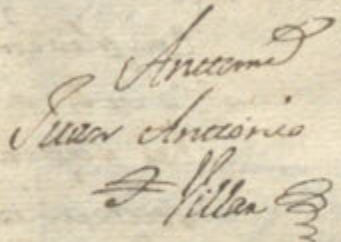 Anttemi
Juan Anttonio
Villar